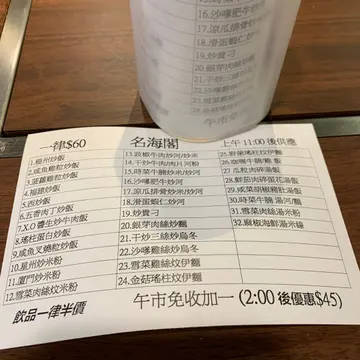 16.沙嗲肥牛炒河
17.涼瓜排骨炒
18.滑蛋蝦仁炒河
19.炒貴刁
20.銀芽肉絲炒
一律$60
名海閣
上午11:00後供應
1.楊州炒飯
2.咸魚雞粒炒飯
3.菠蘿雞粒炒飯
4.福建炒飯
5.西炒飯
6.五香肉丁炒飯
7.X.O醬生炒牛肉飯
8.瑤柱蛋白炒飯
9.咸魚叉燒粒炒飯
10.星州炒米粉
11.廈門炒米粉
12.雪菜肉絲炆米粉
13.豉椒牛肉炒河/炒米
14.干炒牛肉肉片河粉
15.時菜牛腩炒米/炒河
16.沙嗲肥牛炒河
17.涼瓜排骨炒米/炒河
18.滑蛋蝦仁炒河
19.炒貴刁
20.銀芽肉絲炒麵
21.干炒三絲炒烏冬
22.沙嗲雞絲炒烏冬
23.雪菜雞絲炆伊麵
24.金菇瑤柱炆伊麵
25.鮮菌瑤柱炆伊麵
26.咖喱牛腩 飯
27.瓜粒肉碎湯飯
28.鮮茄肉碎蛋花湯飯
29.咸菜胡椒雞粒湯飯
30.時菜牛腩 湯河/飯
31.雪菜肉絲湯米粉
32.麻椒海鮮湯米線
飲品一律半價
午市免收加一 (2:00後優惠$45)